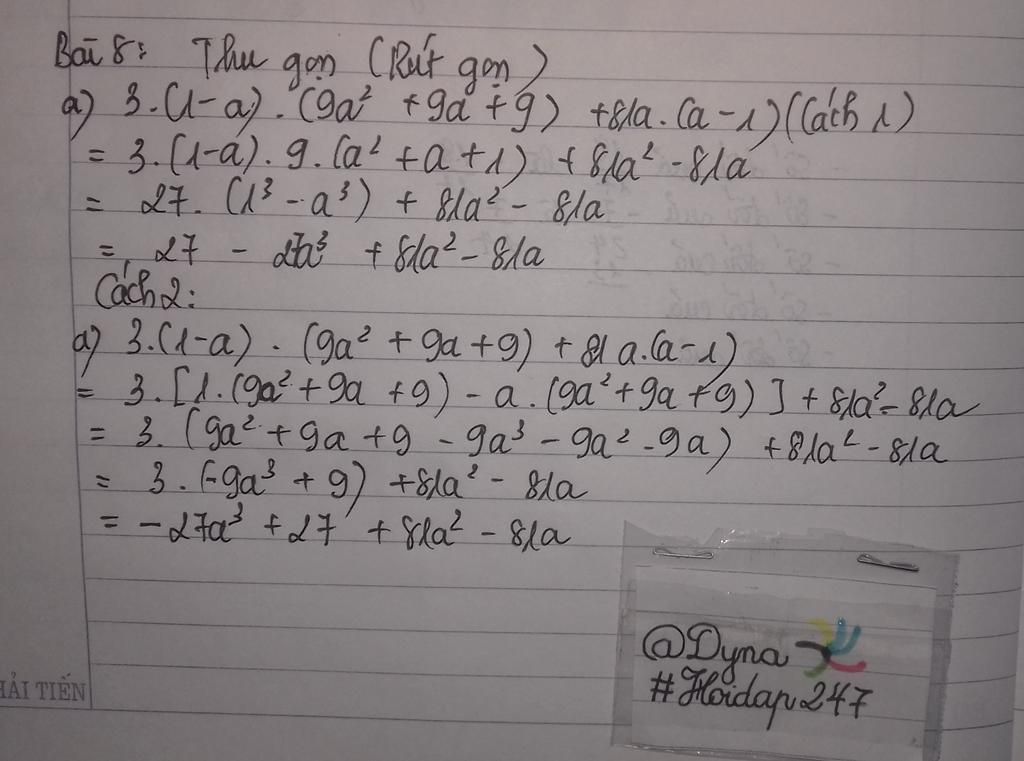 Bài 8: Thu gọn (Rút gọn)
a) 3.(1-a).(9a² +9a +9) +81a.(a-1)(Cách 1)
= 3.(1-a).9.(a² +a+1) + 81a² -81a
= 27.(1³ -a³) + 81a² - 81a
= 27 - 27a³ +81a² -81a
Cách 2:
a) 3.(1-a).(9a² + 9a +9) + 81a.(a-1)
= 3.[1.(9a² +9a +9) -a.(9a² +9a+9)] +81a² -81a
= 3.(9a² +9a +9 -9a³ -9a² -9a) +81a² -81a
= 3.(-9a³ +9) +81a² - 81a
= -27a³ +27 +81a² -81a
@Dyna
#Hoidap247
HẢI TIẾN